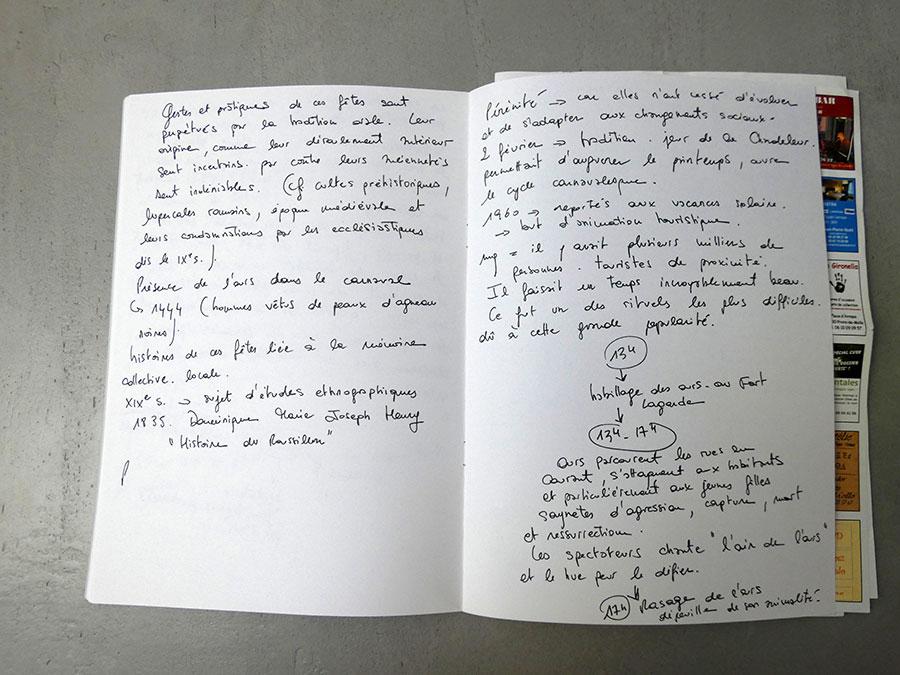 Gestes et pratiques de ces fêtes sont
perpétués par la tradition orale. Leur
origine, comme leur déroulement intérieur
sont incertains. par contre leurs
sont indéniables. (cf cultes préhistoriques,
lupercales romains, époque médiévale et
leurs condamnations par les ecclésiastiques
dès le IXe s.)
Présence de l'ours dans le carnaval
↳ 1444 (hommes vêtus de peaux d'agneau
noires).
histoires de ces fêtes liée à la mémoire
collective. locale.
XIXe s. → sujet d'études ethnographiques
1835. Dominique Marie Joseph Henry
"Histoire du Roussillon"
P
Pérénité → car elles n'ont cessé d'évoluer
et de s'adapter aux changements sociaux.
2 février → tradition. jour de la Chandeleur.
permettait d'augurer le printemps, ouvre
le cycle carnavalesque.
1960 → reportés aux vacances solaire.
→ but d'animation touristique.
mg = il y avait plusieurs milliers de
personnes. touristes de proximité.
Il faisait un temps incroyablement beau.
Ce fut un des rituels les plus difficiles.
dû à cette grande popularité.
13h
↓
habillage des ours au Fort
Lagarde
↓
13h - 17h
Ours parcourent les rues en
courant, s'attaquent aux habitants
et particulièrement aux jeunes filles
saynètes d'agression, capture, mort
et ressurrection.
Les spectateurs chante "l'air de l'ours"
et le hue pour le défier.
17h Rasage de l'ours
dépouille de son animalité.
BAR
Gironella
SPECIAL CUIR